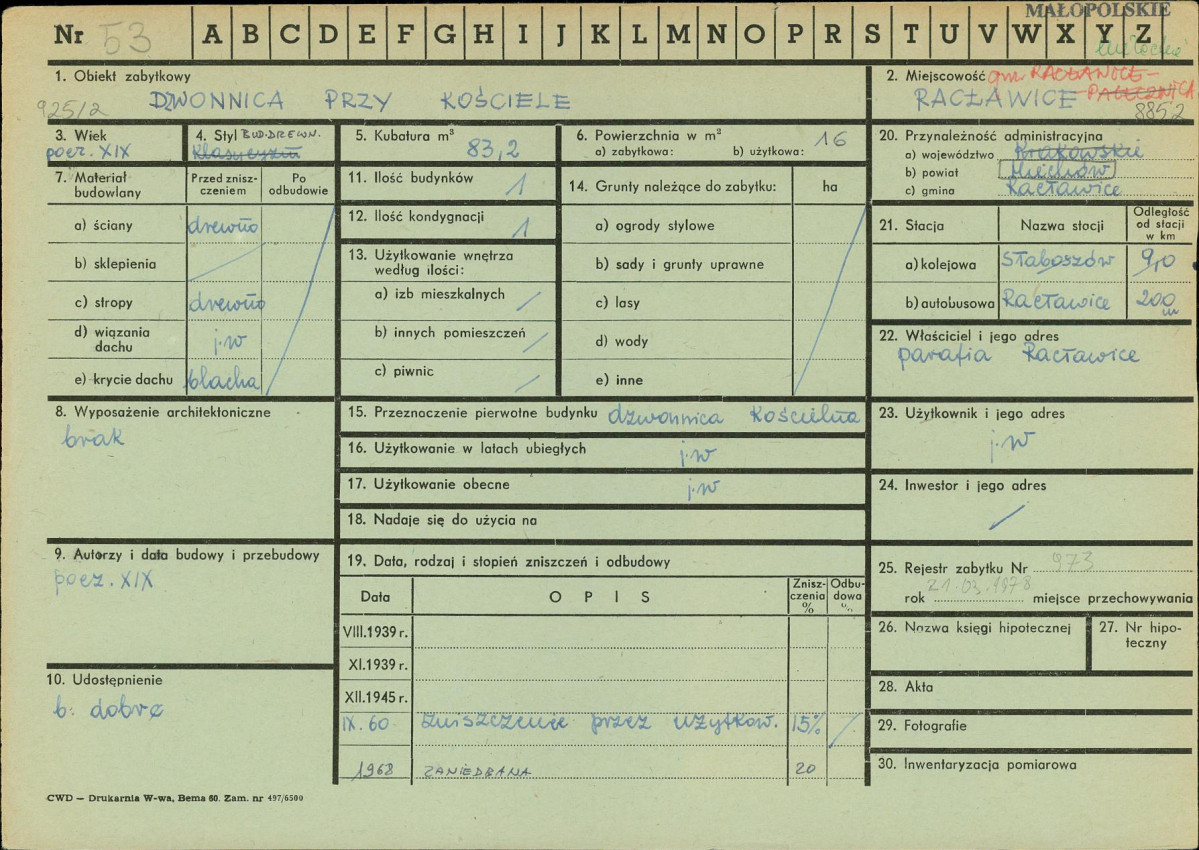 MAŁOPOLSKIE
Nr 53 A B C D E F G H I J K L M N O P R S T U V W X Y Z
1. Obiekt zabytkowy
925/2 DZWONNICA PRZY KOŚCIELE
2. Miejscowość gm. RACŁAWICE-
RACŁAWICE PAŁECZNICA
8852
3. Wiek
pocz. XIX
4. Styl BUD. DREWN.
klasycyzm
5. Kubatura m³
83,2
6. Powierzchnia w m²
a) zabytkowa: b) użytkowa: 16
20. Przynależność administracyjna
a) województwo Krakowskie
b) powiat Miechów
c) gmina Racławice
7. Materiał budowlany
Przed znisz-
czeniem
Po
odbudowie
a) ściany drewno
b) sklepienia
c) stropy drewno
d) wiązania
dachu j.w
e) krycie dachu blacha
11. Ilość budynków 1
12. Ilość kondygnacji 1
13. Użytkowanie wnętrza
według ilości:
a) izb mieszkalnych /
b) innych pomieszczeń /
c) piwnic /
14. Grunty należące do zabytku: ha
a) ogrody stylowe
b) sady i grunty uprawne
c) lasy
d) wody
e) inne
21. Stacja Nazwa stacji
Odległość
od stacji
w km
a) kolejowa Słaboszów 9,0
b) autobusowa Racławice 200 m
22. Właściciel i jego adres
parafia Racławice
8. Wyposażenie architektoniczne
brak
15. Przeznaczenie pierwotne budynku dzwonnica kościelna
16. Użytkowanie w latach ubiegłych j.w
17. Użytkowanie obecne j.w
18. Nadaje się do użycia na
23. Użytkownik i jego adres
j.w
24. Inwestor i jego adres
/
9. Autorzy i data budowy i przebudowy
pocz. XIX
19. Data, rodzaj i stopień zniszczeń i odbudowy
Data O P I S
Znisz-
czenia
%
Odbu-
dowa
%
VIII.1939 r.
XI.1939 r.
XII.1945 r.
IX. 60 zniszczenie przez użytkow. 15% /
1968 ZANIEDBANA 20
25. Rejestr zabytku Nr 973
rok 21.03.1978 miejsce przechowywania
26. Nazwa księgi hipotecznej
27. Nr hipo-
teczny
28. Akta
29. Fotografie
30. Inwentaryzacja pomiarowa
10. Udostępnienie
b. dobre
CWD — Drukarnia W-wa, Bema 60. Zam. nr 497/6500